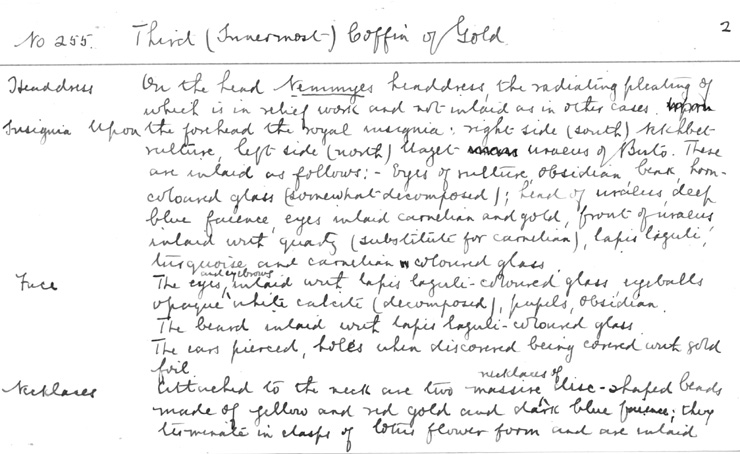 2
No 255. Third (Innermost) Coffin of Gold
Headdress On the head Nemmyes headdress, the radiating pleating of
which is in relief work and not inlaid as in other cases.
Insignia Upon the forehead the royal insignia: right side (south) Nekhbet
vulture, left side (north) Uazet uraeus of Buto. These
are inlaid as follows:- Eyes of vulture, obsidian beak, horn-
coloured glass (somewhat decomposed); head of uraeus, deep
blue faience, eyes inlaid carnelian and gold, front of uraeus
inlaid with quartz (substitute for carnelian), lapis lazuli,
turquoise and carnelian coloured glass.
Face The eyes and eyebrows inlaid with lapis lazuli-coloured glass, eyeballs
opaque white calcite (decomposed), pupils, obsidian.
The beard inlaid with lapis lazuli-coloured glass.
The ears pierced, holes when discovered being covered with gold
foil.
Necklaces Attached to the neck are two massive necklaces of disc-shaped beads
made of yellow and red gold and dark blue faience; they
terminate in clasps of lotus flower form and are inlaid